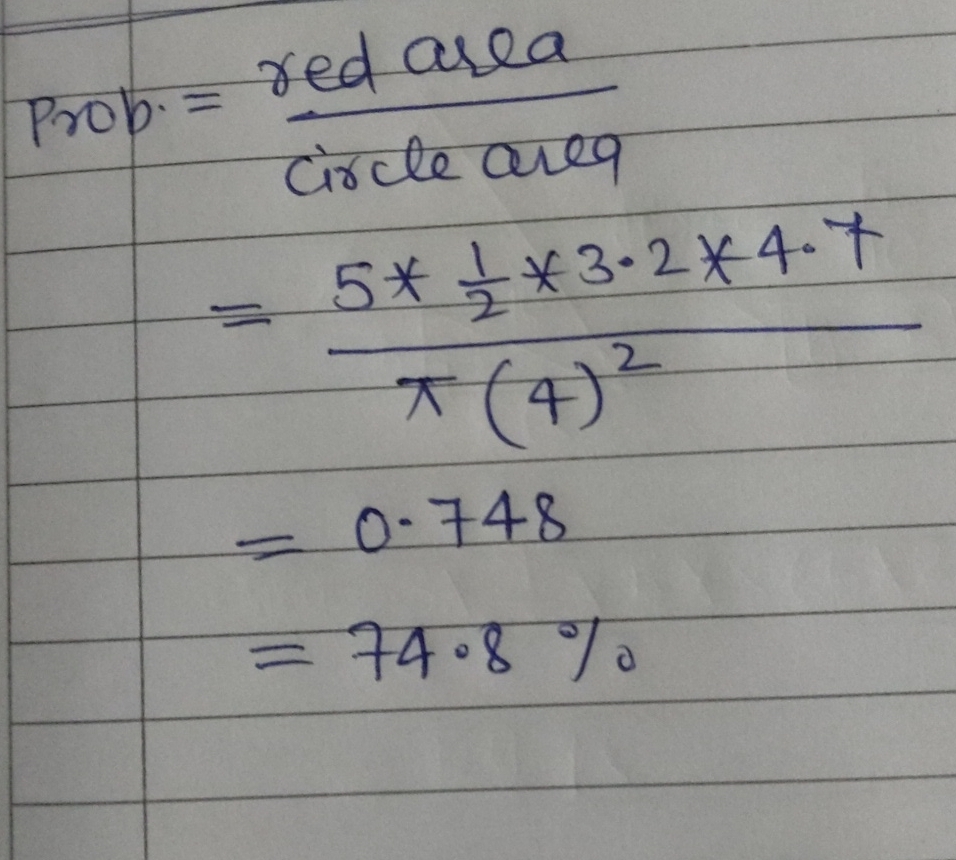 Prob. = red area
circle area
= 5 * 1/2 * 3.2 * 4.7
π (4)²
= 0.748
= 74.8 %